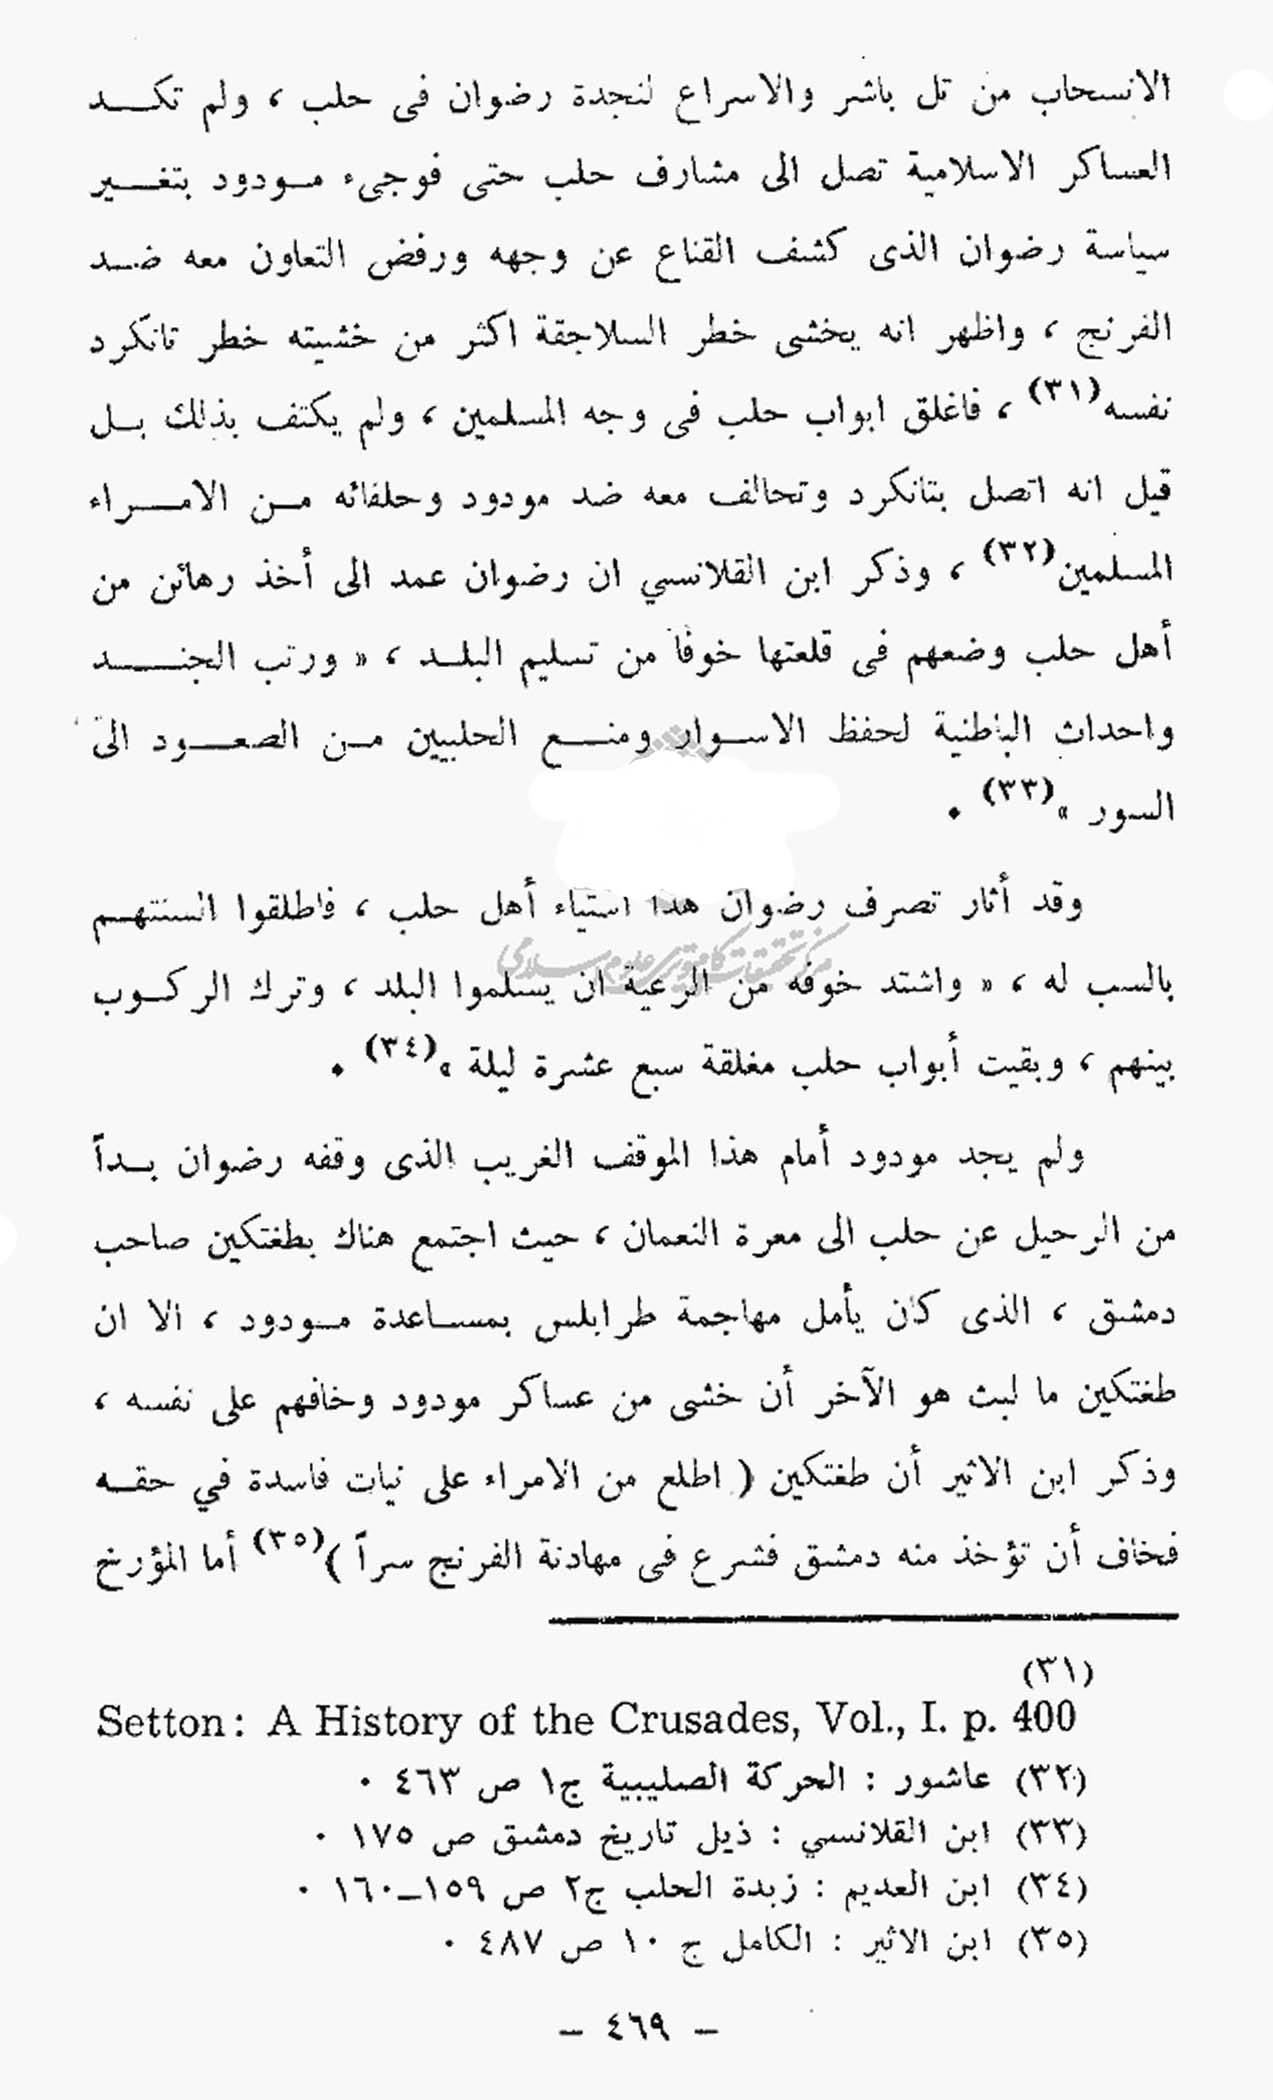 الانسحاب من تل باشر والاسراع لنجدة رضوان فى حلب ، ولم تكد
العساكر الاسلامية تصل الى مشارف حلب حتى فوجىء مودود بتغير
سياسة رضوان الذى كشف القناع عن وجهه ورفض التعاون معه ضد
الفرنج ، واظهر انه يخشى خطر السلاجقة اكثر من خشيته خطر تانكرد
نفسه(٣١) ، فاغلق ابواب حلب فى وجه المسلمين ، ولم يكتف بذلك بل
قيل انه اتصل بتانكرد وتحالف معه ضد مودود وحلفائه من الامراء
المسلمين(٣٢) ، وذكر ابن القلانسي ان رضوان عمد الى أخذ رهائن من
أهل حلب وضعهم فى قلعتها خوفاً من تسليم البلد ، « ورتب الجند
واحداث الباطنية لحفظ الاسوار ومنع الحلبيين من الصعود الى
السور »(٣٣) .
وقد أثار تصرف رضوان هذا استياء أهل حلب ، فاطلقوا السنتهم
بالسب له ، « واشتد خوفه من الرعية ان يسلموا البلد ، وترك الركوب
بينهم ، وبقيت أبواب حلب مغلقة سبع عشرة ليلة »(٣٤) .
ولم يجد مودود أمام هذا الموقف الغريب الذى وقفه رضوان بداً
من الرحيل عن حلب الى معرة النعمان ، حيث اجتمع هناك بطغتكين صاحب
دمشق ، الذى كان يأمل مهاجمة طرابلس بمساعدة مودود ، الا ان
طغتكين ما لبث هو الآخر أن خشى من عساكر مودود وخافهم على نفسه ،
وذكر ابن الاثير أن طغتكين ( اطلع من الامراء على نيات فاسدة في حقه
فخاف أن تؤخذ منه دمشق فشرع فى مهادنة الفرنج سراً )(٣٥) أما المؤرخ
(٣١)
Setton: A History of the Crusades, Vol., I. p. 400
(٣٢) عاشور : الحركة الصليبية ج١ ص ٤٦٣ .
(٣٣) ابن القلانسي : ذيل تاريخ دمشق ص ١٧٥ .
(٣٤) ابن العديم : زبدة الحلب ج٢ ص ١٥٩–١٦٠ .
(٣٥) ابن الاثير : الكامل ج ١٠ ص ٤٨٧ .
– ٤٦٩ –